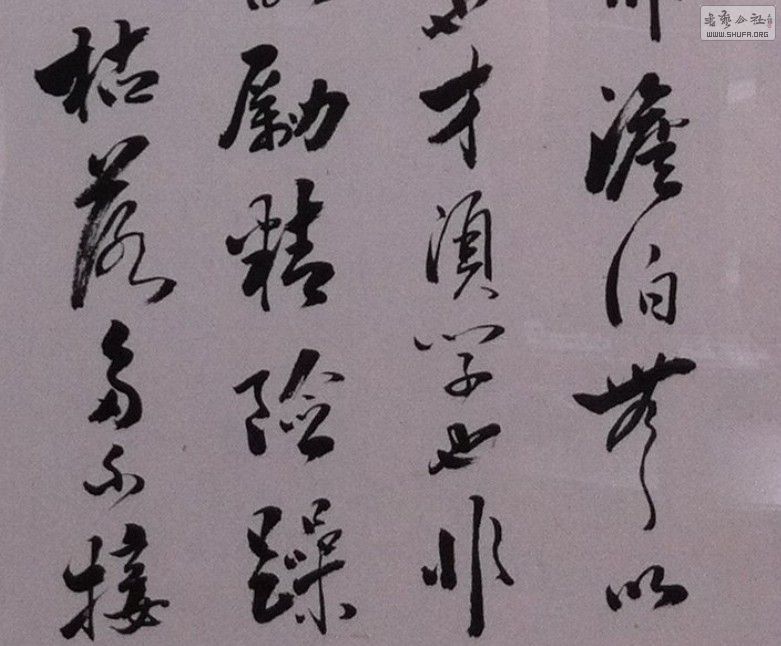 澹泊無以
也才須學也非
勵精險躁
枯落多不接
書藝公社
WWW.SHUFA.ORG